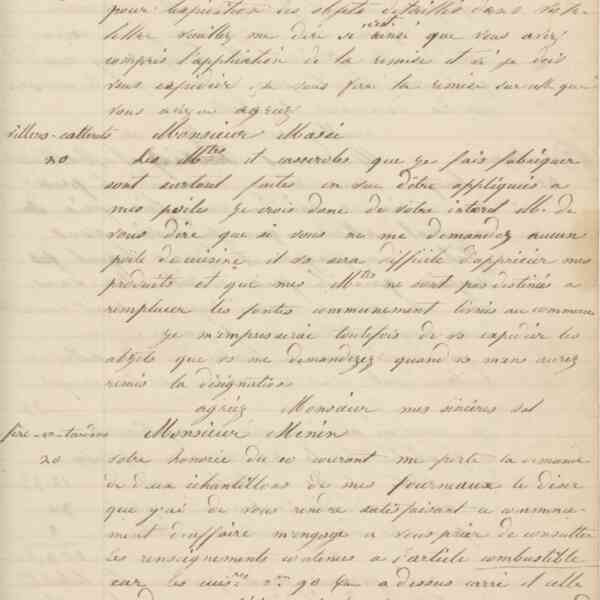 pour expédition des objets détaillés dans votre
lettre veuillez me dire si c'est ainsi que vous avez
compris l'appliation de la remise et si je dois
vous expédier ou vous faire la remise sur celle que
vous avez agréez
villers-cotterets Monsieur Massé
20 Les Mtres et casseroles que je fais fabriquer
sont surtout faites en vue d'être appliqués a
mes poëles je crois donc de votre interet M. de
vous dire que si vous ne me demandez aucun
poële de cuisine il vs sera difficile d'apprécier mes
produits et que mes Mtes ne sont pas destinés a
remplacer les fontes communement livrés au commerce
je m'empresserai toutefois de vs expédier les
objets que vs me demanderez quand vs m'en aurez
remis la désignation
agréez Monsieur mes sincères sal
fère-en-tardenois Monsieur Menin
20 votre honorée du 20 courant me porte la demande
de deux échantillons de mes fourneaux le désir
que j'ai de vous rendre satisfaisant ce commence-
ment d'affaire m'engage a vous prier de consulter
les renseignements contenus a l'article combustible
car les 90 a dessus carré et celle